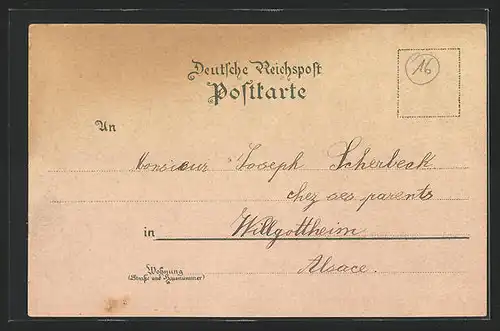 Deutsche Reichspost
Postkarte
16
An
Monsieur Joseph Scherbeck
chez ses parents
in Willgottheim
Alsace.
Wohnung
(Straße und Hausnummer)